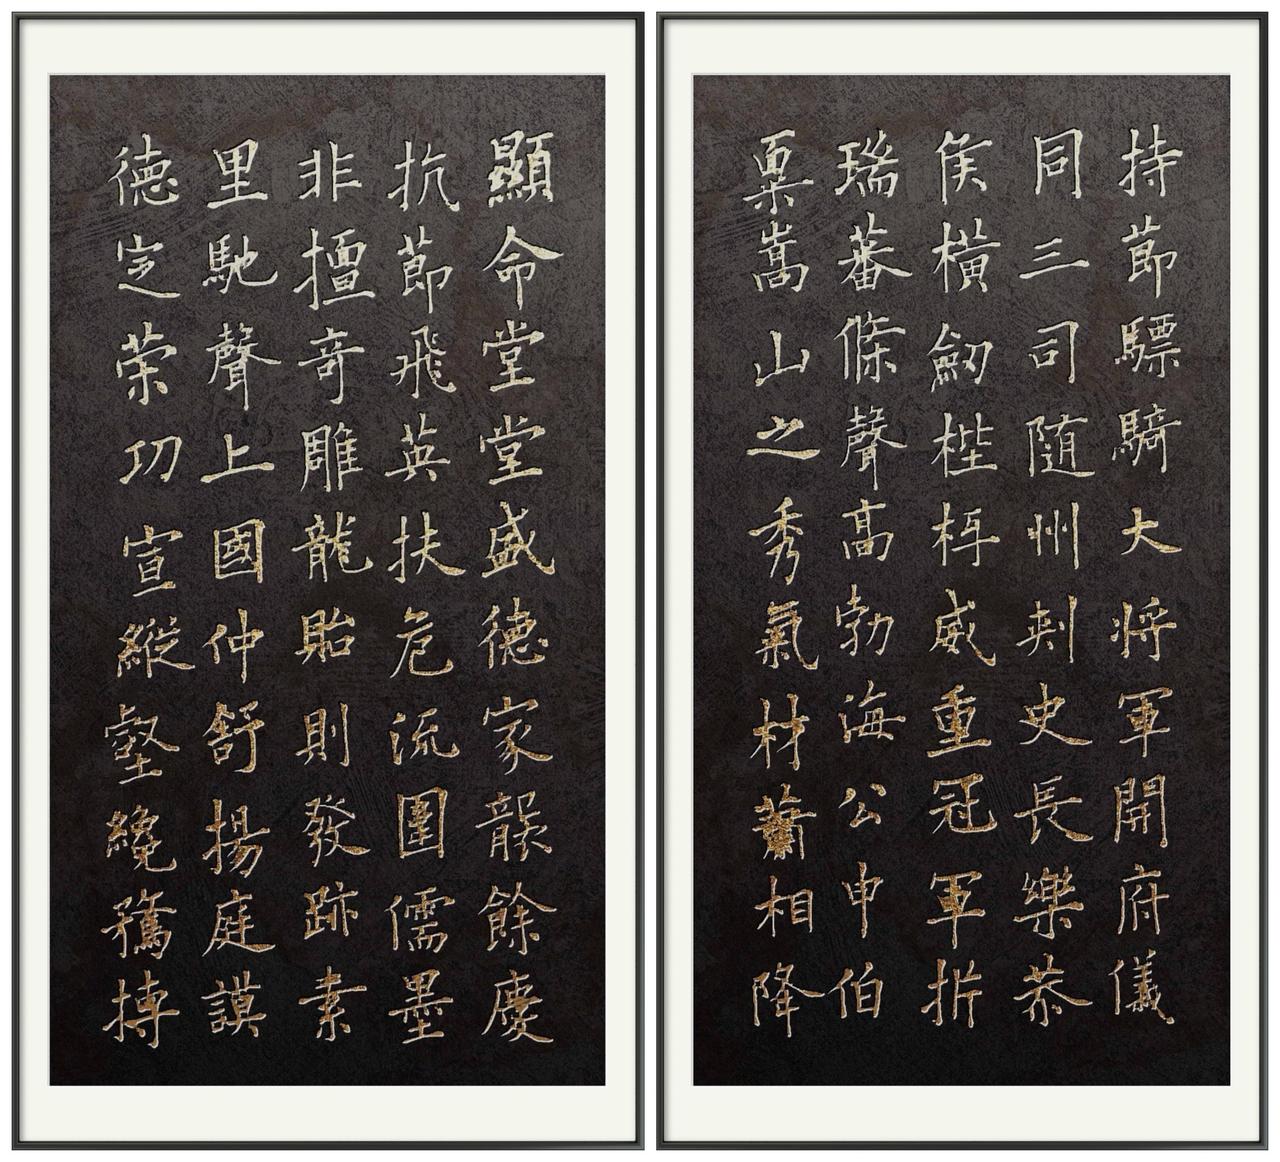 持節驃騎大將軍開府儀
同三司隨州刺史長樂恭
侯橫劒梐枑威重冠軍折
瑞蕃條聲高勃海公申伯
稟嵩山之秀氣材蕭相降
顯命堂堂盛德家餘慶
抗節飛英扶危流儒墨
非擅奇雕龍貽則發跡素
里馳聲上國仲舒揚庭謨
德定榮功宣縱壑纔騖摶